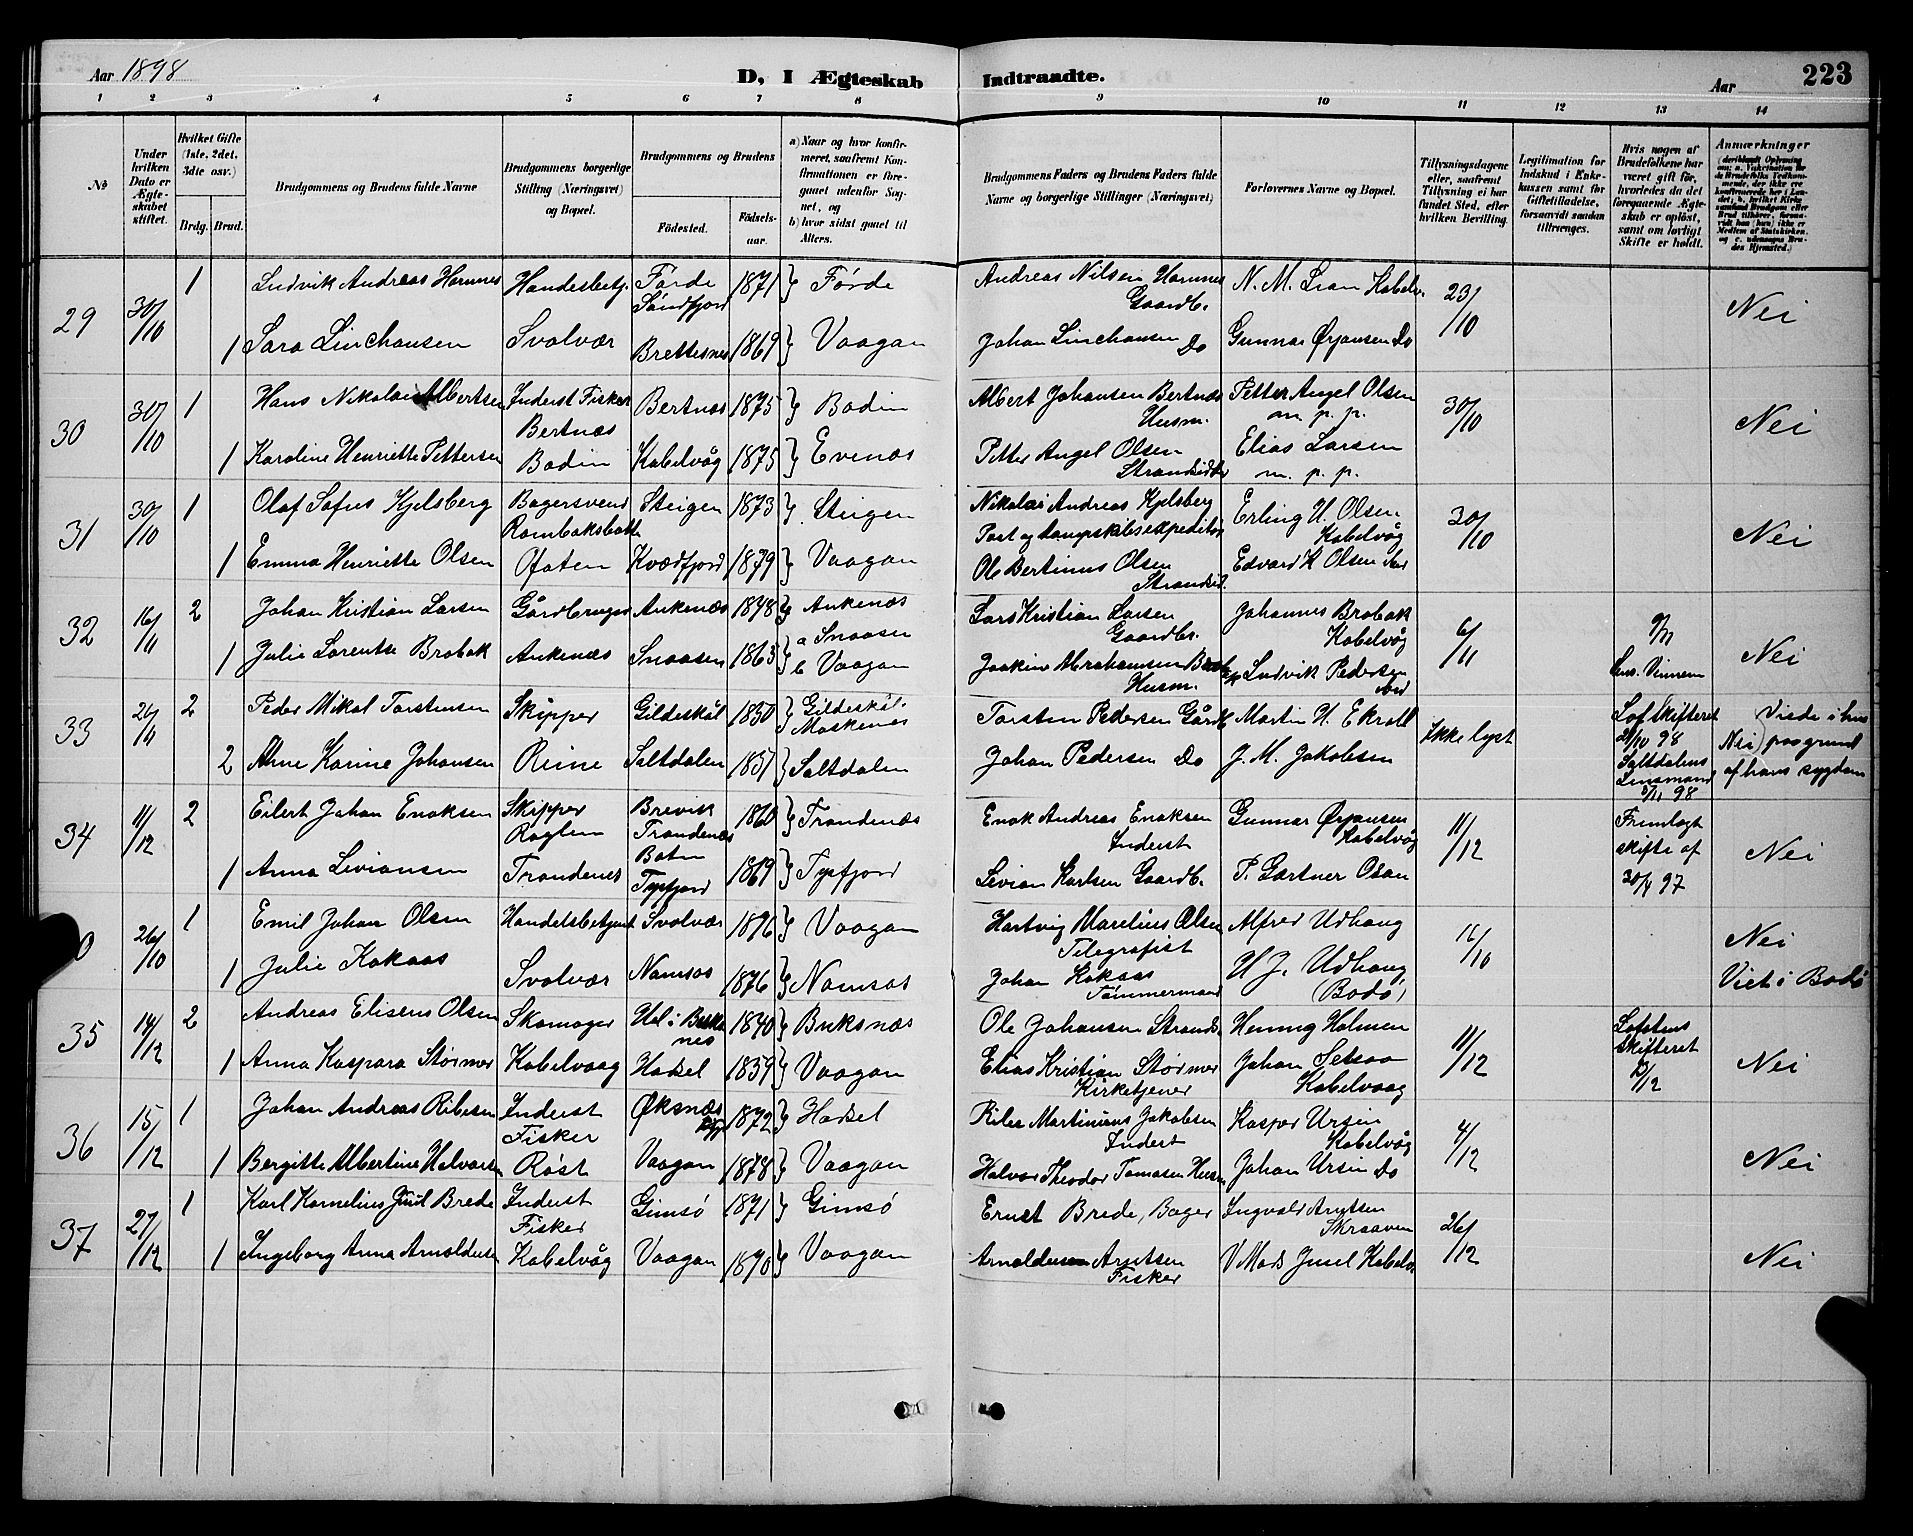 Aar 1898
D, I Ægteskab Indtraadte.
Aar 223
1 2 3 4 5 6 7 8 9 10 11 12 13 14
№
Under hvilken Dato er Ægteskabet stiftet.
Hvilket Gifte (1ste, 2det, 3dte osv.)
Brdg. Brud.
Brudgommens og Brudens fulde Navne
Brudgommens borgerlige Stilling (Næringsvei) og Bopæl.
Brudgommens og Brudens
Födested. Födselsaar.
a) Naar og hvor konfirmeret, saafremt Konfirmationen er foregaaet udenfor Sognet, og
b) hvor sidst gaaet til Alters.
Brudgommens Faders og Brudens Faders fulde Navne og borgerlige Stillinger (Næringsvei)
Forlovernes Navne og Bopæl.
Tillysningsdagene eller, saafremt Tillysning ei har fundet Sted, efter hvilken Bevilling.
Legitimation for Indskud i Enkekassen samt for Giftetilladelse, forsaavidt saadan tiltrænges.
Hvis nogen af Brudefolkene har været gift før, hvorledes da det foregaaende Ægteskab er opløst, samt om lovligt Skifte er holdt.
Anmærkninger
29 30/10 1 Ludvik Andreas Hamnes Handesbetj. Førde Søndfjord 1871 Førde Andreas Nilsen Hamnes Gaardb. N. M. Lian Kabelv. 23/10 Nei
1 Sara Linchausen Svolvær Brettesnes 1869 Vaagan Johan Linchausen Do Gunnar Ørjansen Do
30 30/10 1 Hans Nikolai Albertsen Inderst Fisker Bertnæs 1875 Bodin Albert Johansen Bertnæs Husm. Petter Angel Olsen m. p. p. 30/10 Nei
1 Karoline Henriette Pettersen Bertnæs Bodin Kabelvåg 1875 Evenæs Petter Angel Olsen Strandsidder Elias Larsen m. p. p.
31 30/10 1 Olaf Sofus Kjelsberg Bagersvend Steigen 1873 Steigen Nikolai Andreas Kjelsberg Post og dampskibsexpeditør Erling H. Olsen Kabelvåg 30/10 Nei
1 Emma Henriette Olsen Rombaksbotn Ofoten Kvædfjord 1879 Vaagan Ole Bertinus Olsen Strandsid. Edvard H Olsen
32 16/11 2 Johan Kristian Larsen Gårdbruger Ankenæs Ankenæs Lars Kristian Larsen Gaardbr. Johannes Brobak Kabelvåg 6/11 9/11 Nei
1 Julie Lorentse Brobak Ankenæs Snaasen 1863 a Snaasen b Vaagan Joakim Abrahamsen Husm. Ludvik Pedersen
33 26/11 2 Peder Mikal Torstensen Skipper Gildeskål 1850 Gildeskål. Moskenes Torsten Pedersen Gårdb. Martin H. Ekroll Ikke lyst Lof. Skifteret 98 Nei Viede i hus
2 Ane Karine Johansen Reine Saltdalen 1857 Saltdalen Johan Pedersen Do J. M. Jakobsen Saltdalens Lensmand 98 paa grund af hans sygdom
34 11/12 2 Eilert Johan Enoksen Skipper Brevik Trondenæs 1860 Trondenæs Enok Andreas Enoksen Inderst Gunnar Ørjansen Kabelvåg 11/12 Fremlagt skifte af 97 Nei
1 Anna Liviansen Trondenes Botn Tysfjord 1869 Tysfjord Levian Karlsen Gaardb. P. Gartner Osan
0 26/10 1 Emil Johan Olsen Handelsbetjent Svolvær 1876 Vaagan Hartvig Marelius Olsen Telegrafist Alfred Udhaug 16/10 Nei
1 Julie Kokaas Svolvær Namsos 1876 Namsos Johan Kokaas Tømmermand H J. Udhaug (Bodø) Viet i Bodø
35 14/12 2 Andreas Elisens Olsen Skomager Hol i Buksnes 1840 Buksnæs Ole Johansen Strands. Henning Holmen 11/12 Lofotens Skifteret Nei
1 Anna Kaspara Størmer Kabelvaag Hadsel 1859 Vaagan Elias Kristian Størmer Kirketjener Johan Setsaa Kabelvaag
36 15/12 1 Johan Andreas Ribesen Inderst Fisker Øksnæs 1872 Hadsel Martinius Jakobsen Indert Kasper Ursin Kabelvåg 4/12 Nei
1 Bergitte Albertine Halvorsen Røst Vaagan 1878 Vaagan Halvor Theodor Tomasen Husm Johan Ursin Do
37 27/12 1 Karl Kornelius Juul Brede Inderst Fisker Gimsø 1871 Gimsø Ernst Brede, Bager Ingvald Arntsen Skraaven 26/12 Nei
1 Ingeborg Anna Arnoldusen Kabelvåg Vaagan 1870 Vaagan Arnoldus Arntsen Fisker V Mads Juul Kabelv.